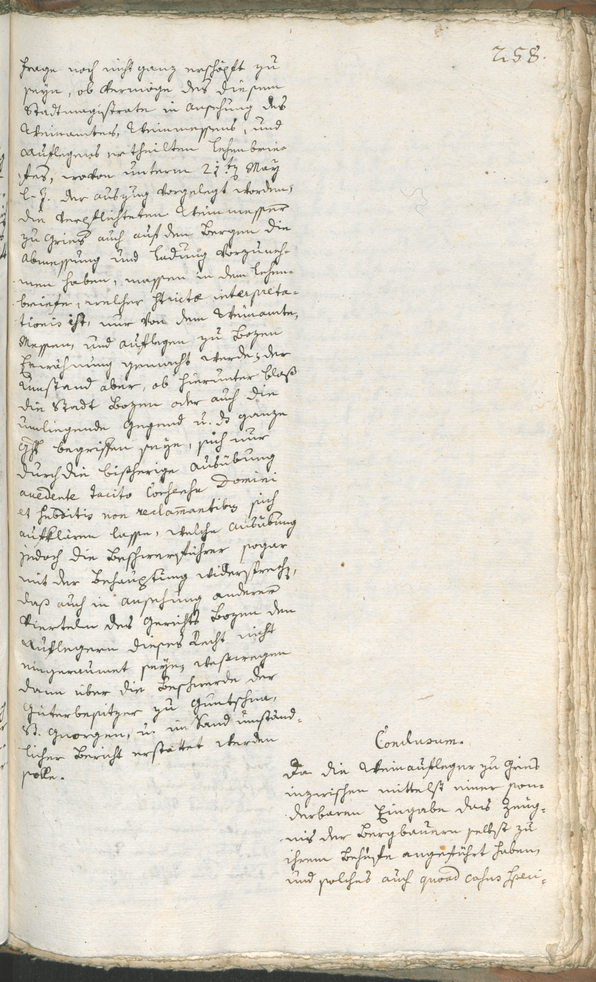 258.
frage noch nicht ganz erschöpft zu
seyn, ob vermöge des diesem
Stadtmagistrate in Ansehung des
Weinamtes, Weinmessens, und
Auflegens ertheilten Lehenbrie-
fes, wovon unterm 21ten May
l. J. der Auszug vorgelegt worden,
die verpflichteten Weinmesser
zu Gries auch auf den Bergen die
Abmessung und Ladung vorzuneh-
men haben, massen in dem Lehen-
briefe, welcher strictae interpreta-
tionis ist, nur von dem Weinamte,
Messen, und auflegen zu Bozen
Erwähnung gemacht werde; der
Umstand aber, ob hierunter blos
die Stadt Bozen oder auch die
umliegende Gegend u. das ganze
begriffen seye, sich nur
durch die bisherige Ausübung
accedente tacito Consensu Domini
et subditis non reclamantibus sich
aufklären lasse, welche Ausübung
jedoch die Beschwerführer sogar
mit der Behauptung widersprechen,
daß auch in Ansehung anderer
Vierteln des Gerichts Bozen den
Auflegern dieses Recht nicht
eingeraumet seye, weßwegen
dann über die Beschwerde der
Güterbesitzer zu Guntschna,
St. Georgen, u. im Sand umständ-
licher Bericht erstattet werden
solle.
Conclusum.
Da die Weinaufleger zu Gries
inzwischen mittelst einer son-
derbaren Eingabe das Zeug-
nis der Bergbauern selbst zu
ihrem Behufe angeführt haben,
und solches auch quoad casus speci-